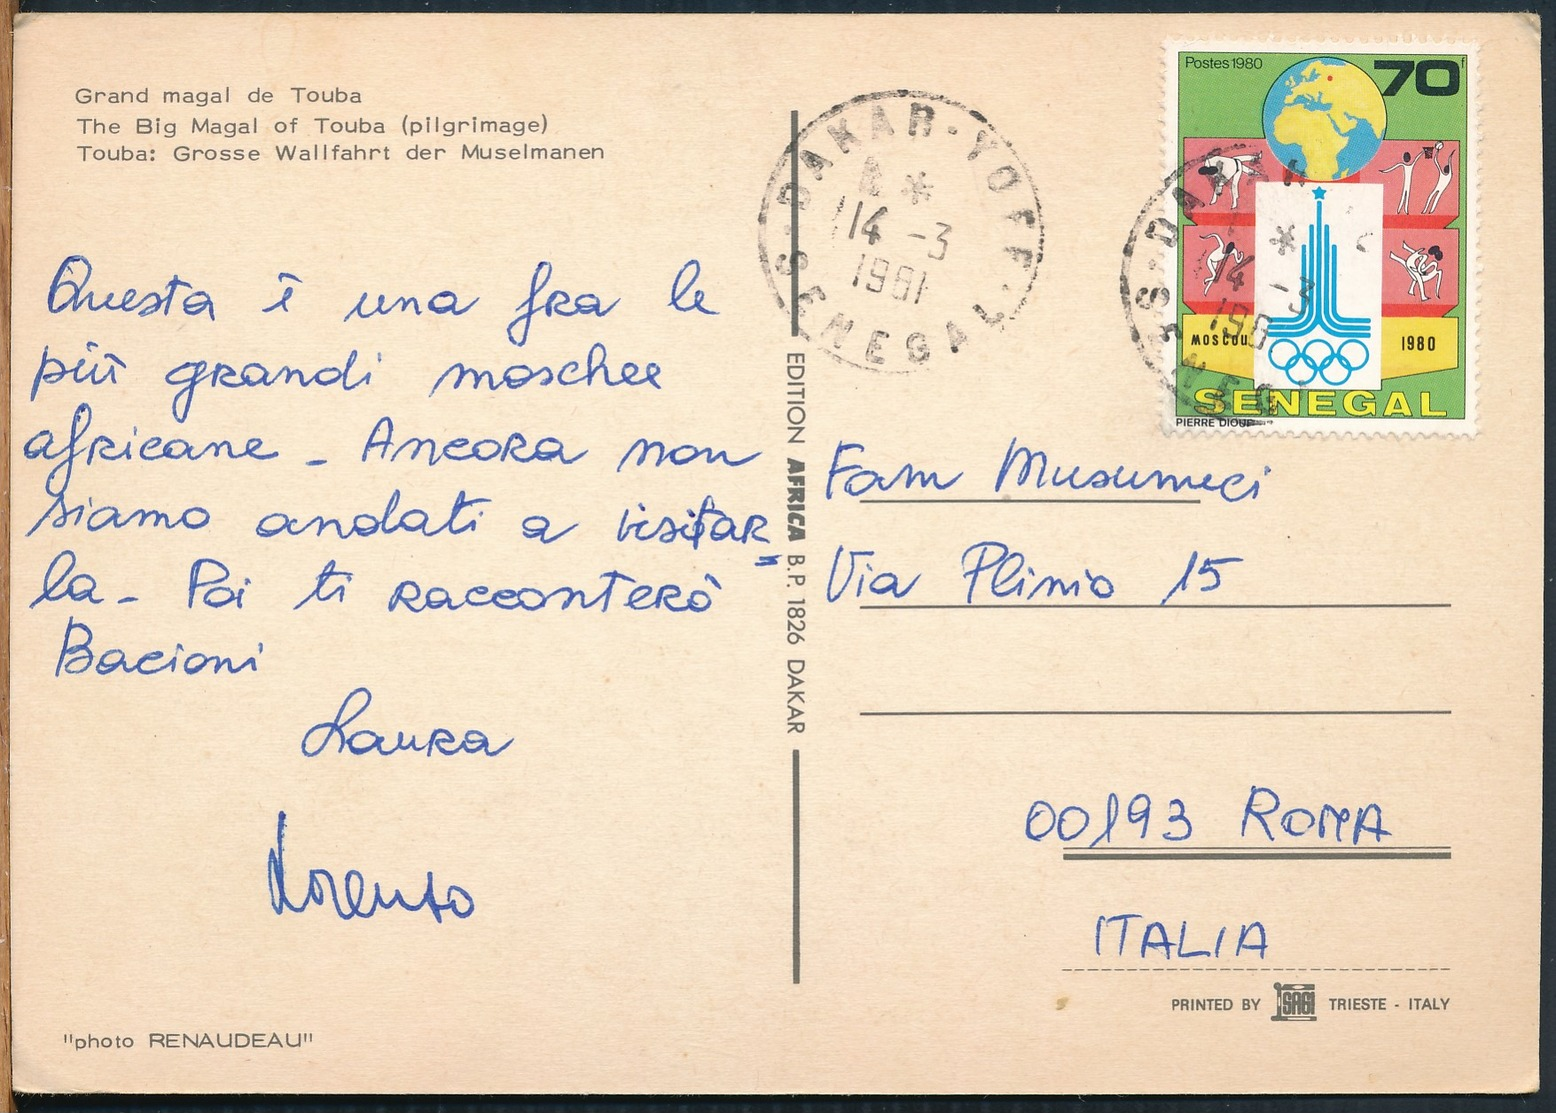 Grand magal de Touba
The Big Magal of Touba (pilgrimage)
Touba: Grosse Wallfahrt der Muselmanen
Questa è una fra le
più grandi moschee
africane - Ancora non
siamo andati a visitar=
la - Poi ti racconterò
Bacioni
Laura
Lorenzo
"photo RENAUDEAU"
EDITION AFRICA B.P. 1826 DAKAR
DAKAR-YOFF
*
14 -3
1981
SENEGAL
Postes 1980
70f
DAKAR
*
14 -3
198
MOSCOU
1980
SENEGAL
PIERRE DIOUF
Fam Musumeci
Via Plinio 15
00193 ROMA
ITALIA
PRINTED BY SAGI TRIESTE - ITALY